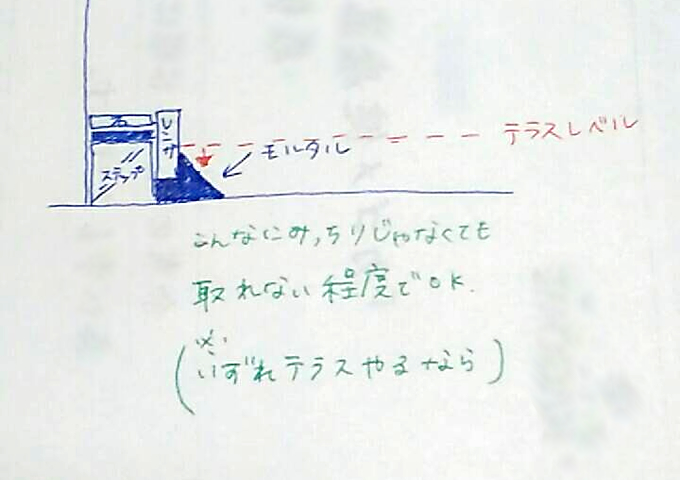 石
レンガ
ステップ
テラスレベル
モルタル
こんなにみっちりじゃなくても
取れない程度でOK.
※
(いずれテラスやるなら)